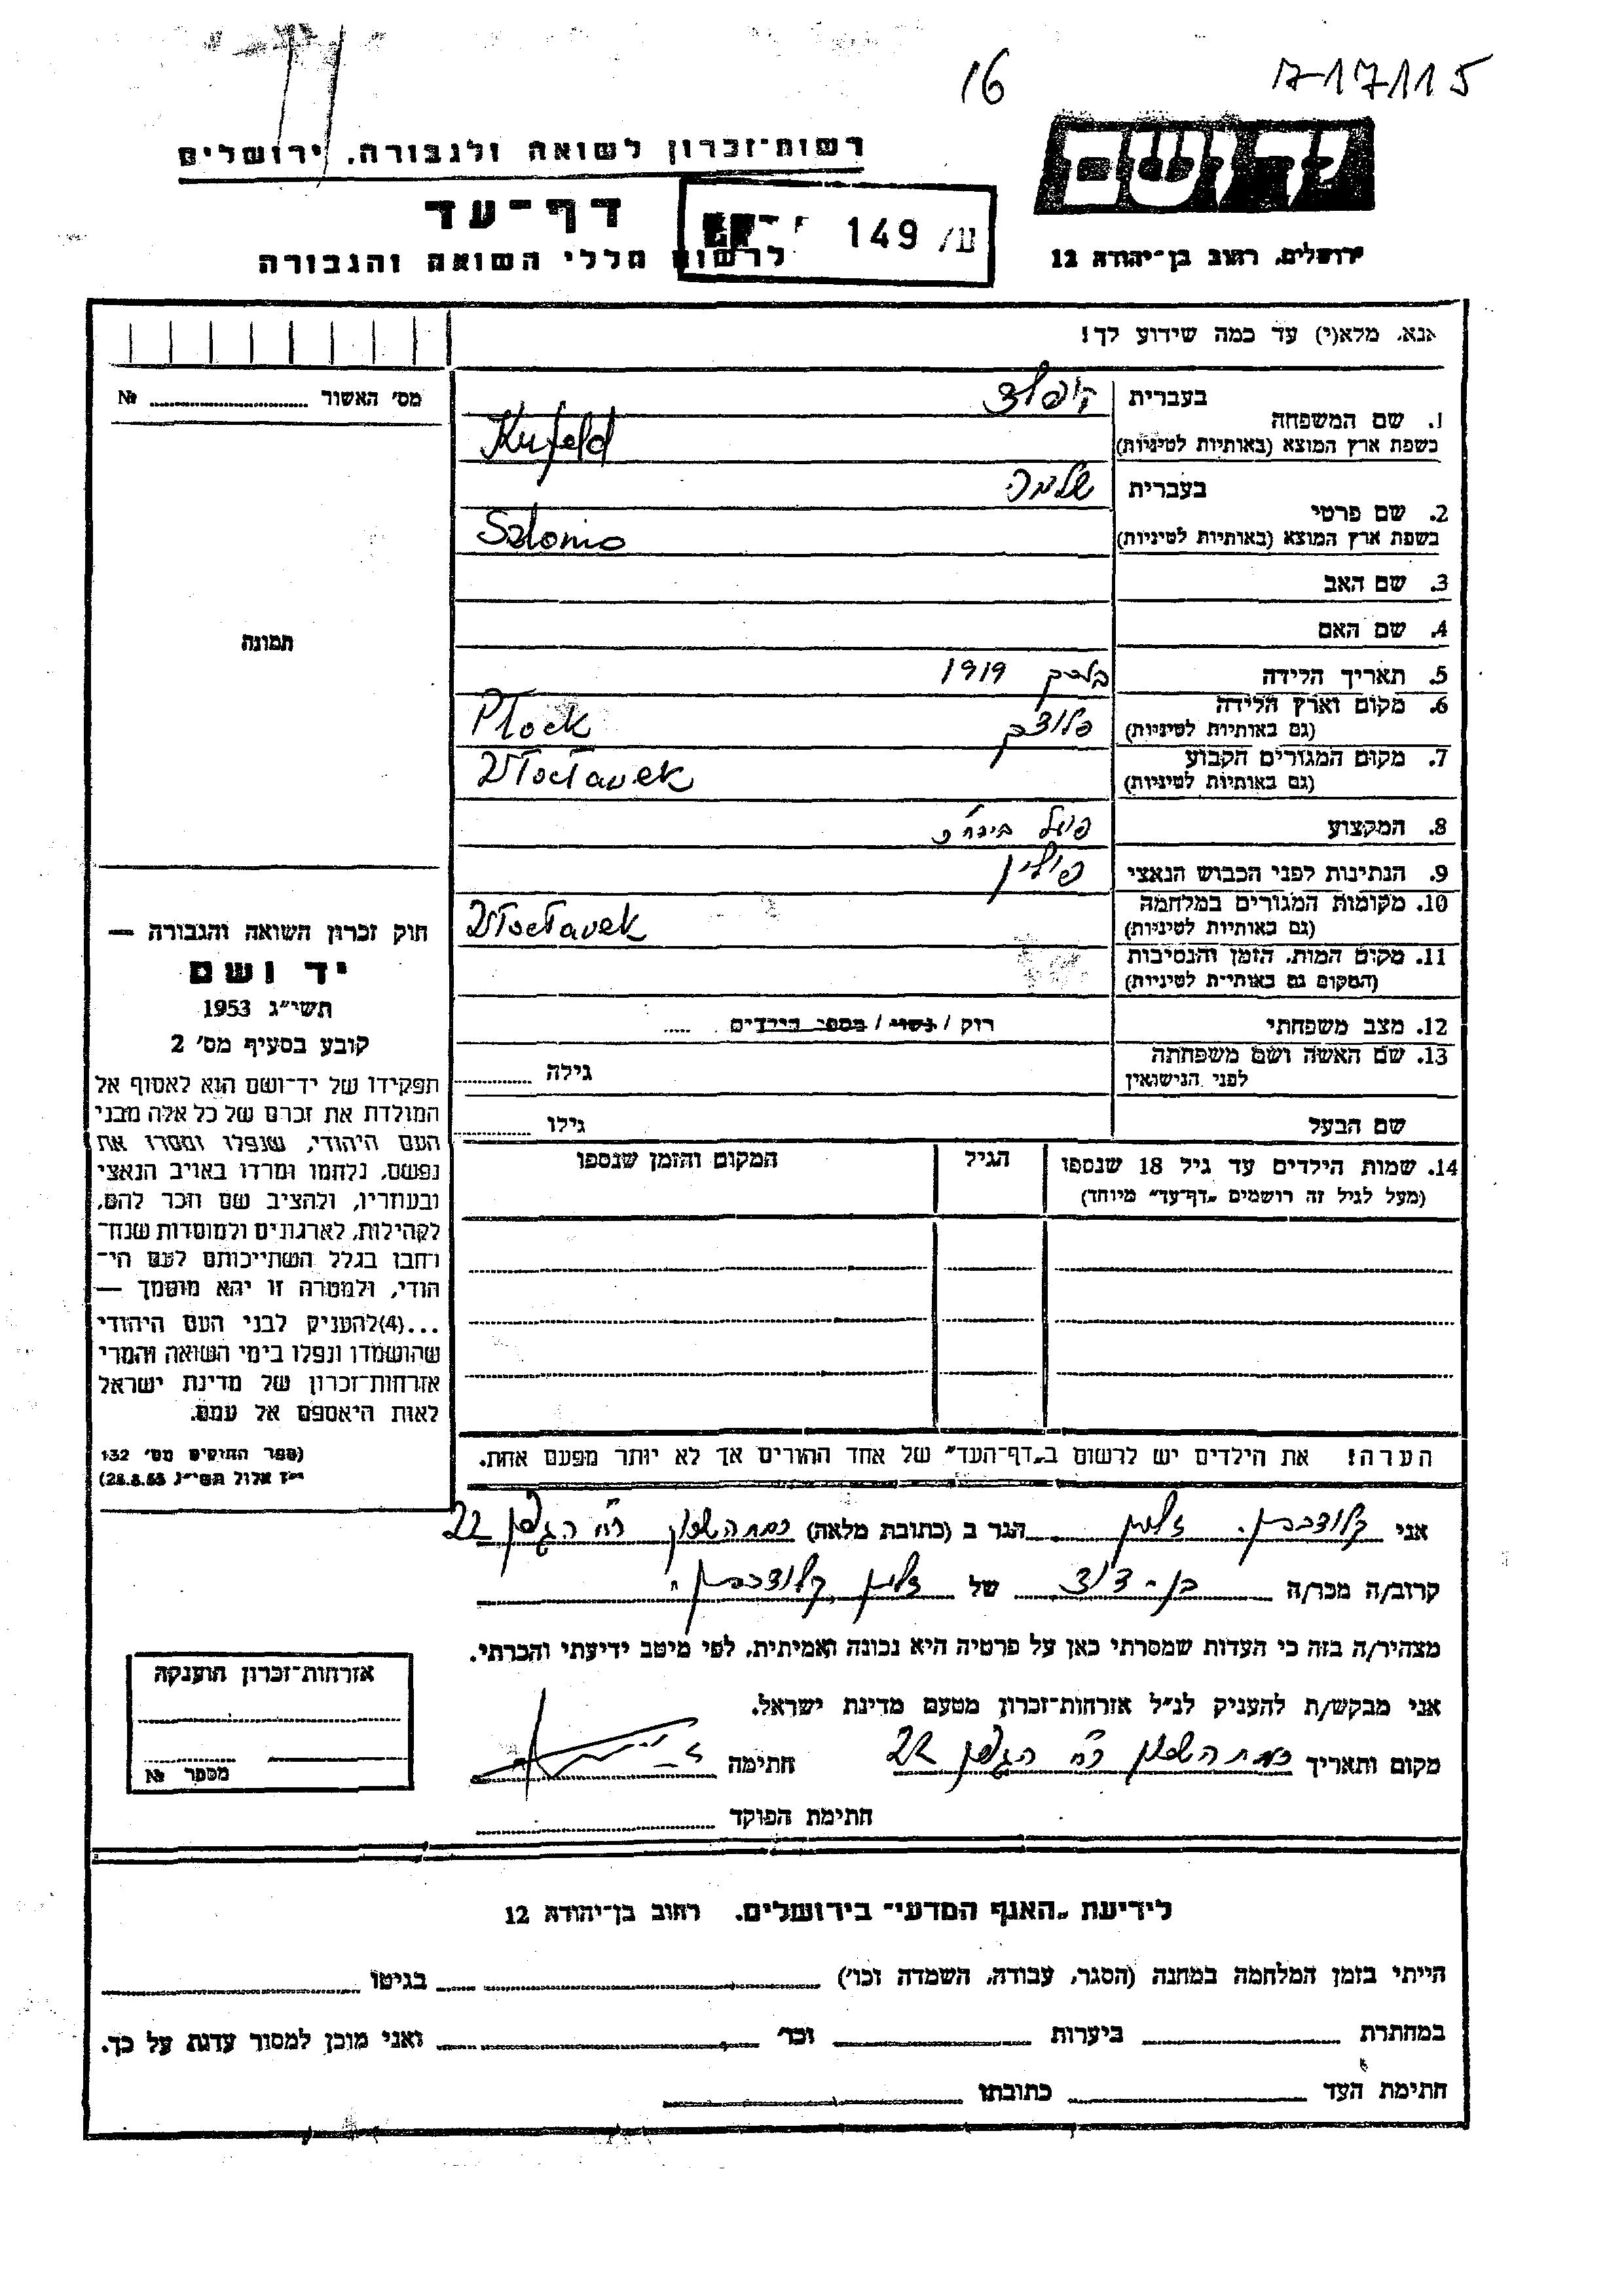 16
717115
יד ושם
רשות־זכרון לשואה ולגבורה, ירושלים
דף־עד
לרשום חללי השואה והגבורה
149 /ע
ירושלים, רחוב בן־יהודה 12
אנא, מלא(י) עד כמה שידוע לך!
מס' האשור № 
1. שם המשפחה
בעברית קופלד
בשפת ארץ המוצא (באותיות לטיניות) Kufeld
2. שם פרטי
בעברית שלמה
בשפת ארץ המוצא (באותיות לטיניות) Szlomo
3. שם האב
4. שם האם
5. תאריך הלידה 1919
6. מקום וארץ הלידה
(גם באותיות לטיניות) פלוצק Płock
7. מקום המגורים הקבוע
(גם באותיות לטיניות) Włocłavek
8. המקצוע פועל
9. הנתינות לפני הכבוש הנאצי פולין
10. מקומות המגורים במלחמה
(גם באותיות לטיניות) Włocłavek
11. מקום המות, הזמן והנסיבות
(המקום גם באותיות לטיניות)
12. מצב משפחתי רוק / נשוי / מספר הילדים .....
13. שם האשה ושם משפחתה
לפני הנישואין
גילה
שם הבעל גילו
14. שמות הילדים עד גיל 18 שנספו הגיל המקום והזמן שנספו
(מעל לגיל זה רושמים „דף־עד" מיוחד)
תמונה
חוק זכרון השואה והגבורה —
יד ושם
תשי"ג 1953
קובע בסעיף מס' 2
תפקידו של יד־ושם הוא לאסוף אל
המולדת את זכרם של כל אלה מבני
העם היהודי, שנפלו ומסרו את
נפשם, נלחמו ומרדו באויב הנאצי
ובעוזריו, ולהציב שם וזכר להם,
לקהילות, לארגונים ולמוסדות שנח־
רבו בגלל השתייכותם לעם הי־
הודי, ולמטרה זו יהא מוסמך —
...(4)להעניק לבני העם היהודי
שהושמדו ונפלו בימי השואה והמרי
אזרחות־זכרון של מדינת ישראל
לאות היאספם אל עמם.
(ספר החוקים מס' 132
י"ז אלול תשי"ג 28.8.53)
הערה! את הילדים יש לרשום ב„דף־העד" של אחד ההורים אך לא יותר מפעם אחת.
אני הגר ב (כתובת מלאה) רמת השרון רח' הגפן 22
קרוב/ה מכר/ה בן-דוד של
מצהיר/ה בזה כי העדות שמסרתי כאן על פרטיה היא נכונה ואמיתית, לפי מיטב ידיעתי והכרתי.
אני מבקש/ת להעניק לנ"ל אזרחות־זכרון מטעם מדינת ישראל.
מקום ותאריך רמת השרון רח' הגפן 22 חתימה
חתימת הפוקד
אזרחות־זכרון הוענקה
מספר №
לידיעת „האגף המדעי" בירושלים, רחוב בן־יהודה 12
הייתי בזמן המלחמה במחנה (הסגר, עבודה, השמדה וכו') בגיטו
במחתרת ביערות וכו' ואני מוכן למסור עדות על כך.
חתימת העד כתובתו